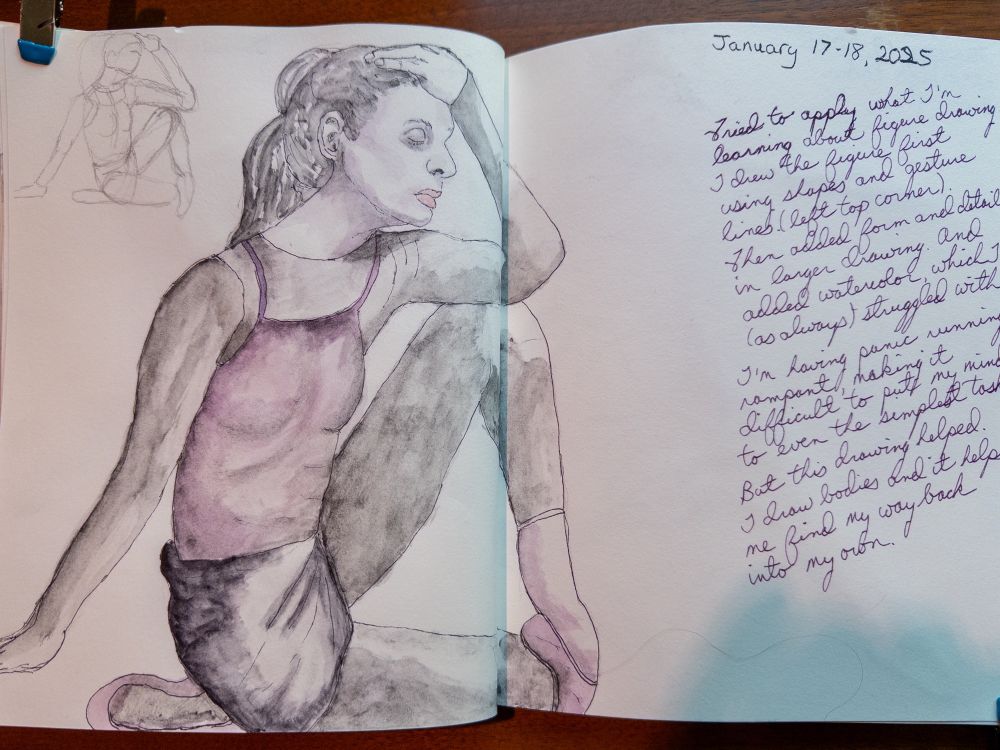 January 17-18, 2025
Tried to apply what I'm
learning about figure drawing
I drew the figure first
using shapes and gesture
lines. (left top corner).
Then added form and detail
in larger drawing. And
added watercolor, which I
(as always) struggled with
I'm having panic running
rampant, making it
difficult to put my mind
to even the simplest task
But this drawing helped.
I draw bodies and it helps
me find my way back
into my own.